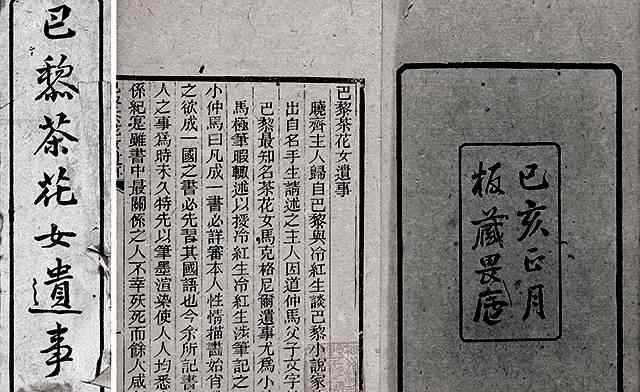 巴黎茶花女遺事
巴黎茶花女遺事
曉齋主人歸自巴黎與冷紅生談巴黎小說家
出自名手生請述之主人因道仲馬父子文字
巴黎最知名茶花女馬克格尼爾遺事尤爲小
馬極筆暇輙述以授冷紅生冷紅生涉筆記之
小仲馬曰凡成一書必詳審本人性情描畫始肖
之欲成一國之書必先習其國語也今余所記書
人之事爲時未久特先以筆墨渲染使人人均悉
係紀寔雖書中最關係之人不幸殀死而餘人咸
己亥正月
板藏畏廬